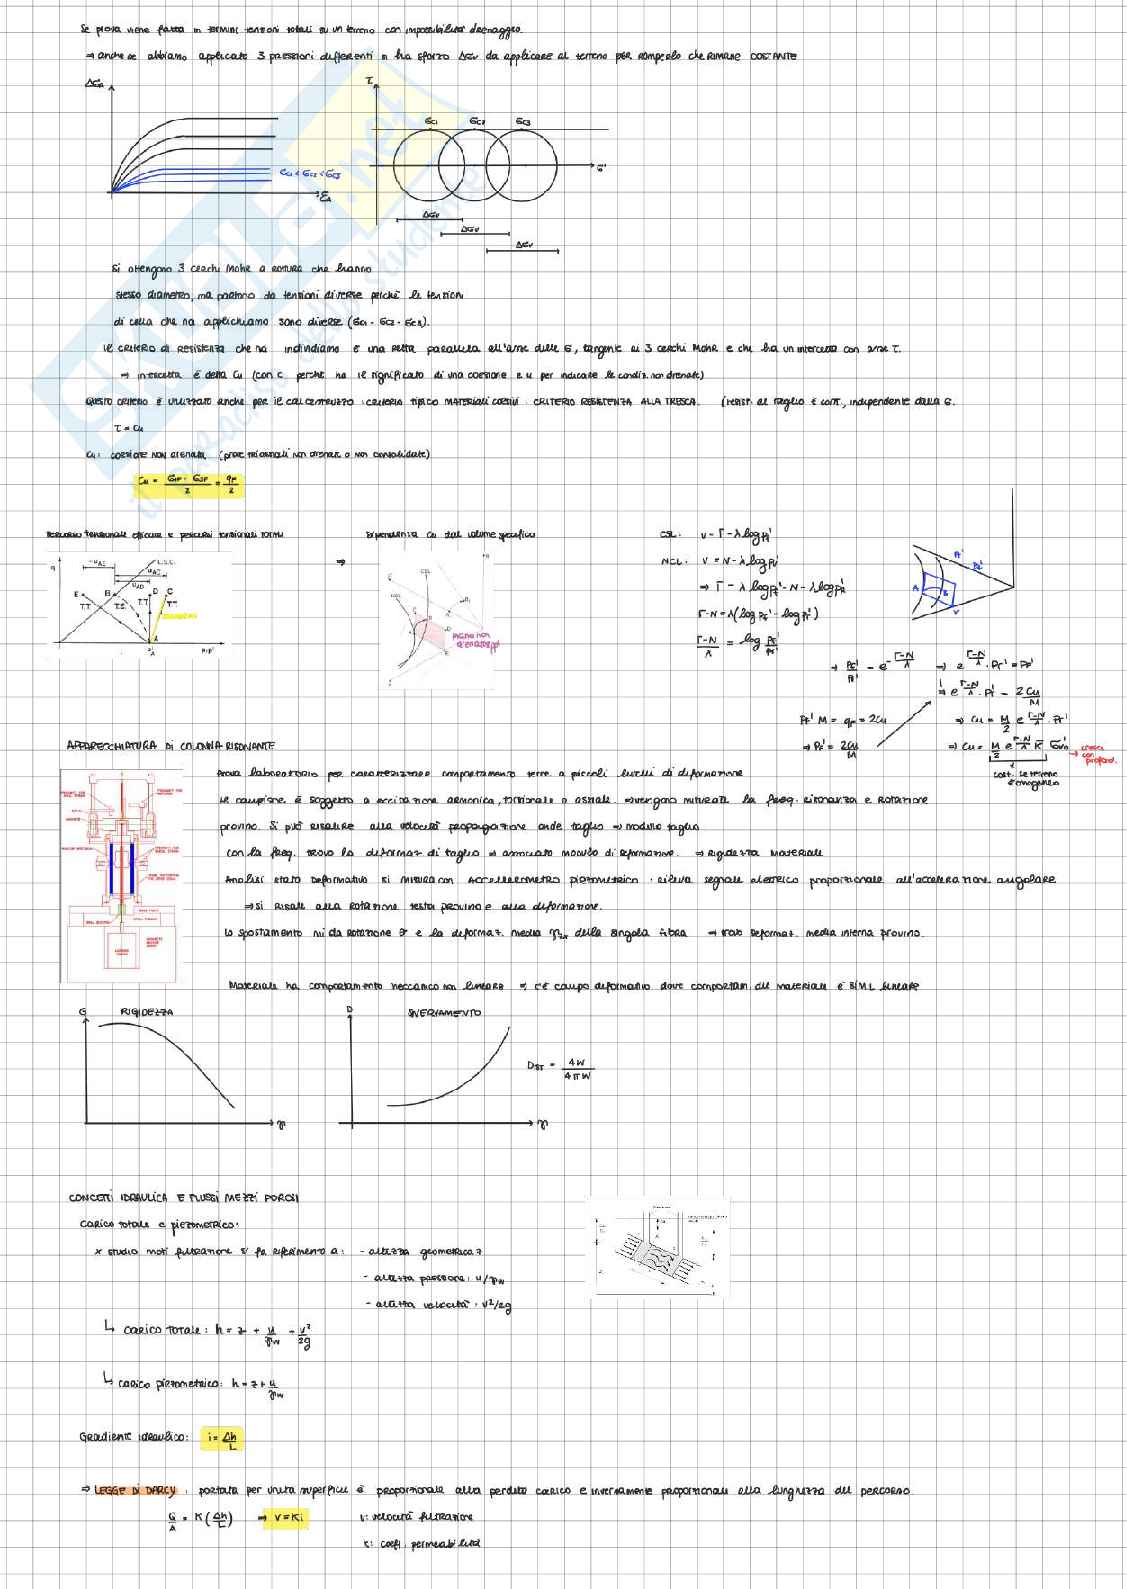 Se prova viene fatta in termini tensioni totali su un terreno con impossibilità drenaggio.
⇒ anche se abbiamo applicate 3 pressioni differenti si ha sforzo Δσv da applicare al terreno per romperlo che RIMANE COSTANTE
Δσa
τ
σc1 σc2 σc3
σc1 < σc2 < σc3
εa
σ'
Δσv
Δσv
Δσv
Si ottengono 3 cerchi Mohr a rottura che hanno
stesso diametro, ma partono da tensioni diverse perché le tensioni
di cella che ha applichiamo sono diverse (σc1 - σc2 - σc3).
Il criterio di resistenza che ha individiamo è una retta parallela all'asse delle σ, tangente ai 3 cerchi Mohr e che ha un intercetta con asse τ.
⇒ intercetta è detta Cu (con c perché ha il significato di una coesione e u per indicare le condiz. non drenate)
Questo criterio è utilizzato anche per il calcestruzzo: criterio tipico MATERIALI COESIVI: CRITERIO RESISTENZA ALLA TRESCA. (resist. al taglio è cost., independente dalla σ.
τ = Cu
Cu: coesione NON drenata (prove triassiali non drenate o non consolidate)
Cu = σ1f - σ3f / 2 = qf / 2
Percorso tensionale efficace e percorsi tensionali totali
⇒
Dipendenza Cu dal volume specifico
CSL: v = Γ - λ log pf'
NCL: v = N - λ log pi'
⇒ Γ - λ log pf' = N - λ log pi'
Γ-N = λ(log pf' - log pi')
Γ-N / λ = log pf' / pi'
⇒ pf' / pi' = e^Γ-N/λ ⇒ e^Γ-N/λ · pi' = pf'
⇒ e^Γ-N/λ · pi' = 2Cu / M
pf' M = qf = 2Cu
⇒ Cu = M/2 e^Γ-N/λ · pi'
⇒ pf' = 2Cu / M
⇒ Cu = M/2 e^Γ-N/λ K̄ σ̄vo'
→ cresce con profond.
cost. se terreno è omogeneo
APPARECCHIATURA DI COLONNA RISONANTE
Prova laboratorio per caratterizzare comportamento terre a piccoli livelli di deformazione
Il campione è soggetto a eccitazione armonica, torsionale o assiale ⇒ vengono misurati la freq. risonanza e rotazione
provino. Si può risalire alla velocità propagazione onde taglio ⇒ modulo taglio
con la freq. trovo la deformaz di taglio ⇒ associato modulo di deformazione. ⇒ Rigidezza materiale
Analisi stato deformativo si misura con accelerometro piezometrico: rileva segnale elettrico proporzionale all'accelerazione angolare
⇒ si risale alla rotazione testa provino e alla deformazione.
Lo spostamento mi da rotazione θ e la deformaz. media γ della singola fibra ⇒ trovo deformaz. media interna provino.
Materiale ha comportamento meccanico non lineare ⇒ c'è campo deformativo dove comportam del materiale è SIML lineare
G RIGIDEZZA
γ
D SMERZAMENTO
γ
DST = 4W / 4πW
CONCETTI IDRAULICA E FLUSSI MEZZI POROSI
Carico totale e piezometrico:
x studio moti filtrazione si fa riferimento a: - altezza geometrica z
- altezza pressione: u/γw
- altezza velocità: v²/2g
↳ CARICO TOTALE: h = z + u/γw + v²/2g
↳ carico piezometrico: h = z + u/γw
Gradiente idraulico: i = Δh / L
⇒ LEGGE DI DARCY: portata per unità superficie è proporzionale alla perdita carico e inversamente proporzionale alla lunghezza del percorso
Q/A = K (Δh/L) ⇒ v = Ki
v: velocità filtrazione
K: coeff. permeabilità